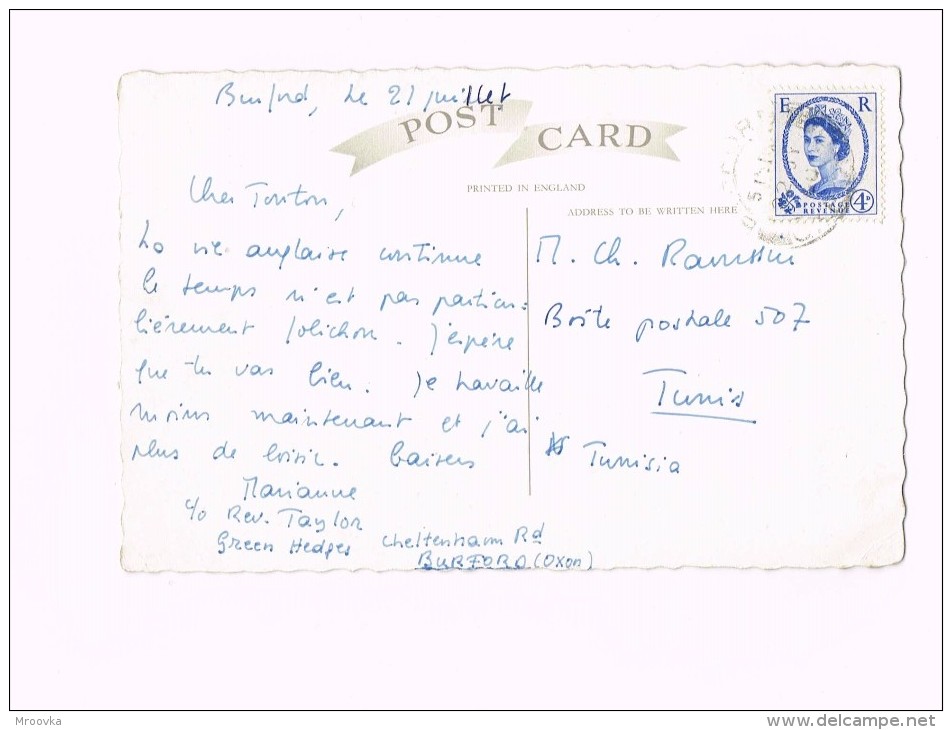 Burford, le 21 juillet
POST CARD
PRINTED IN ENGLAND
ADDRESS TO BE WRITTEN HERE
E R
POSTAGE
REVENUE
4D
Cher Tonton,
La vie anglaise continue
le temps n'est pas particu=
lièrement folichon. J'espère
que tu vas bien. Je travaille
moins maintenant et j'ai
plus de loisir. Baisers
Marianne
c/o Rev. Taylor
Green Hedges Cheltenham Rd
BURFORD (Oxon)
M. Ch.
Boîte postale 507
Tunis
Tunisia
Mroovka
delcampe.net